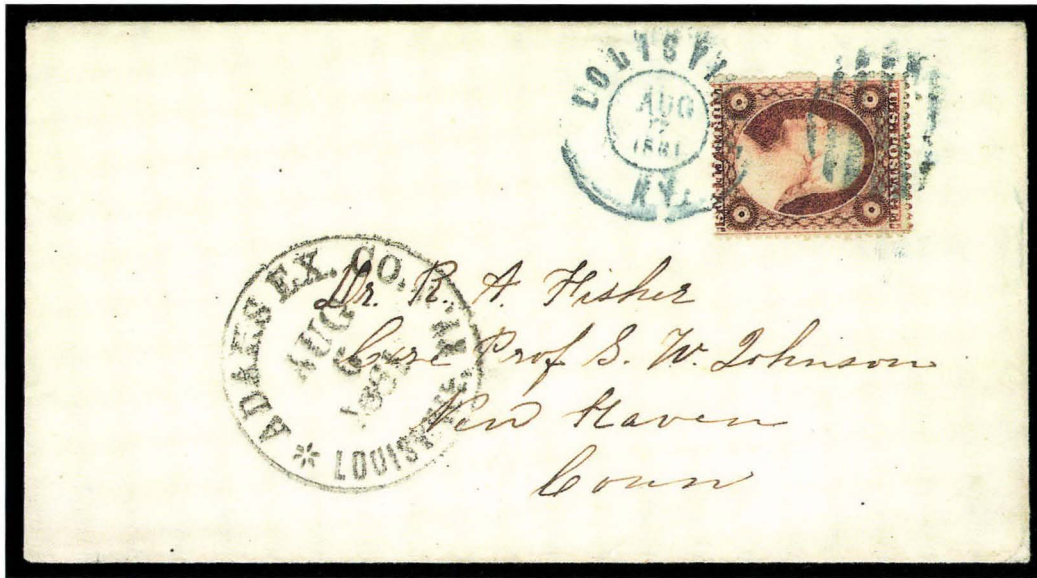 LOUISVILLE
AUG
17
1861
KY.
U.S. POSTAGE
ADAMS EX. CO.
AUG
1861
LOUISVILLE, KY
Dr. R. A. Fisher
Care Prof S. W. Johnson
New Haven
Conn